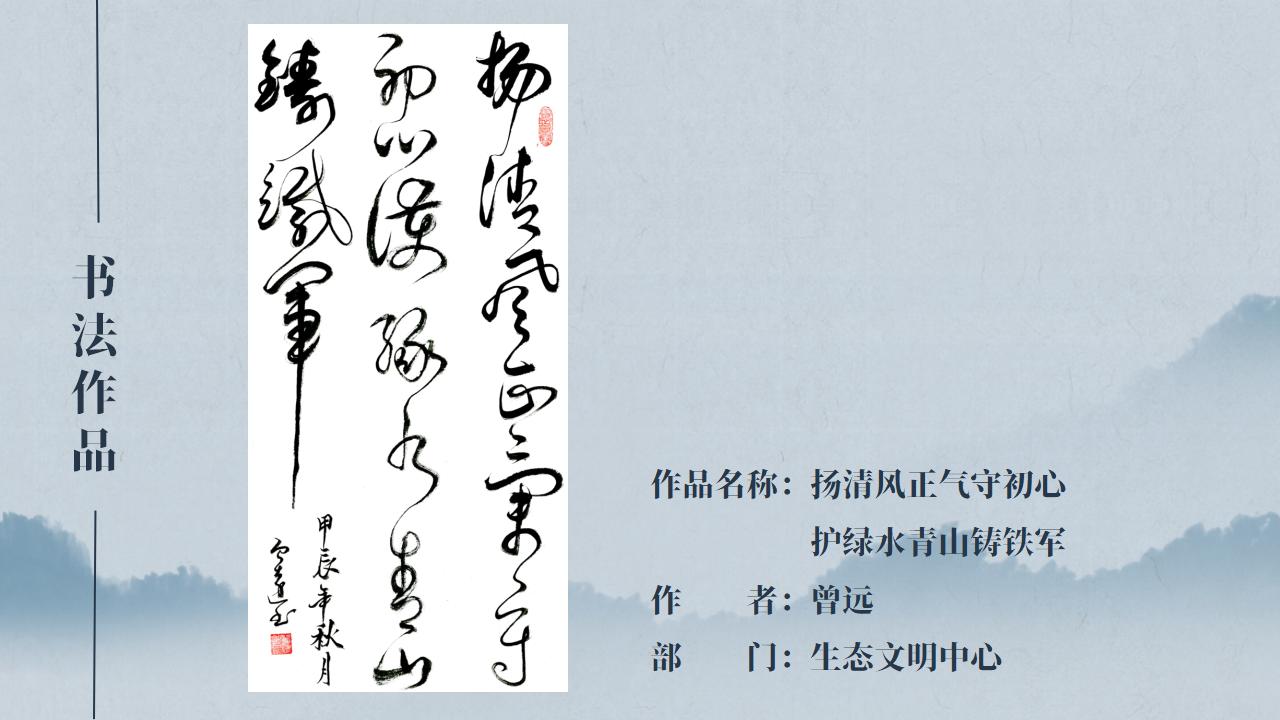 书法作品
揚清風正氣守
初心護綠水青山
鑄鐵軍
甲辰年秋月
作品名称：扬清风正气守初心
护绿水青山铸铁军
作 者：曾远
部 门：生态文明中心